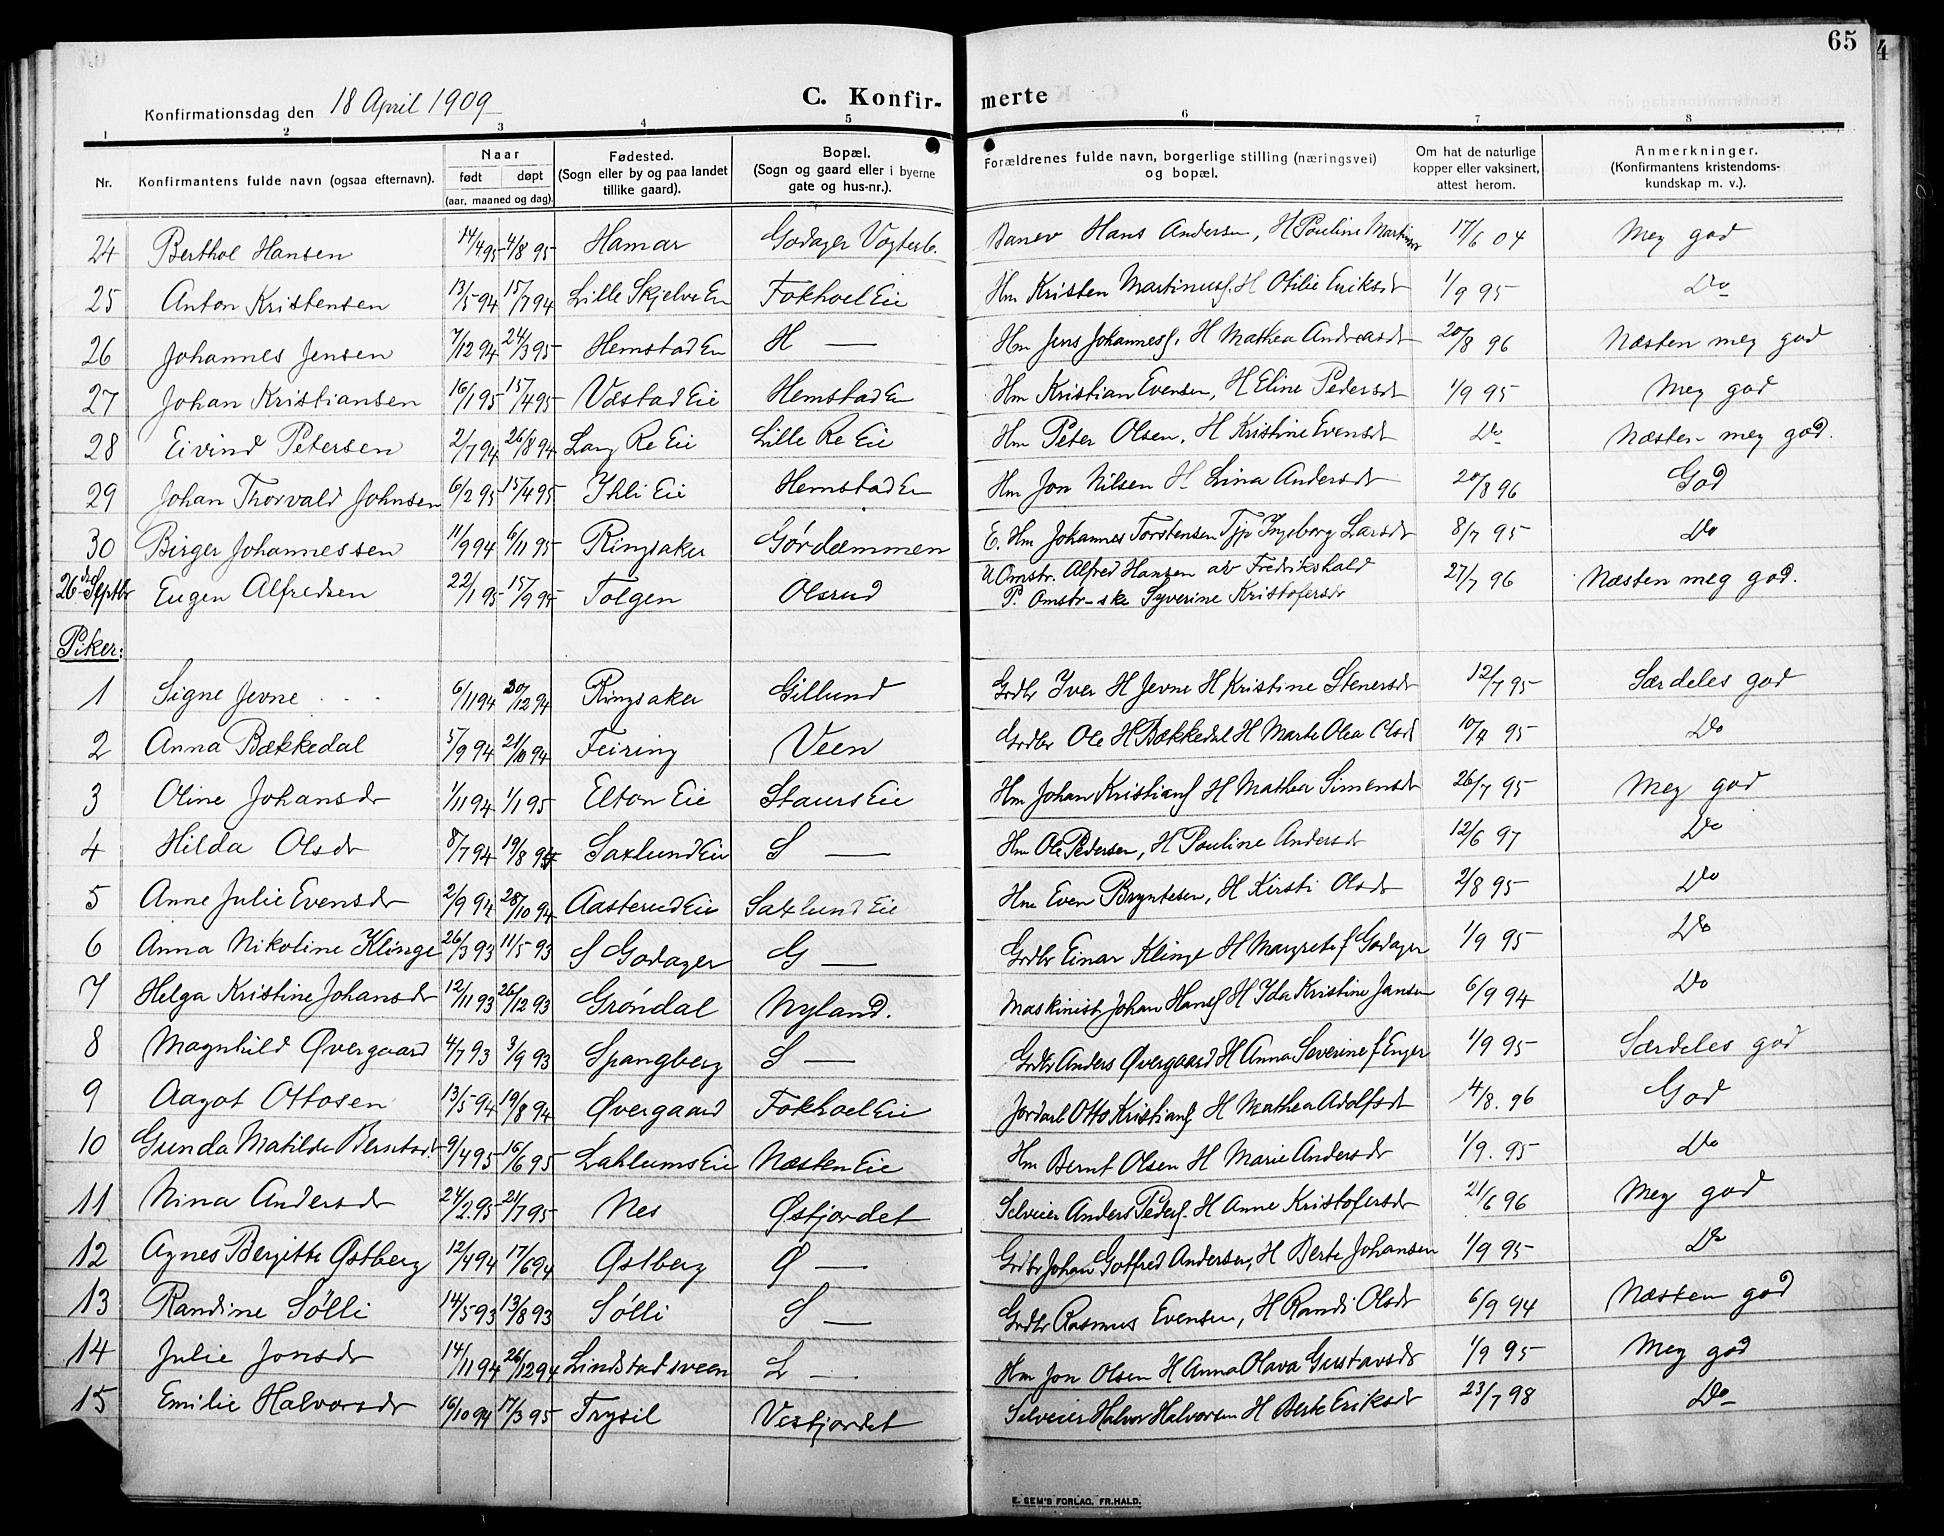 65
4
Konfirmationsdag den 18 April 1909
C. Konfir- merte
1 2 3 4 5 6 7 8
Nr. Konfirmantens fulde navn (ogsaa efternavn). Naar født døpt (aar, maaned og dag). Fødested. (Sogn eller by og paa landet tillike gaard). Bopæl. (Sogn og gaard eller i byerne gate og hus-nr.). Forældrenes fulde navn, borgerlige stilling (næringsvei) og bopæl. Om hat de naturlige kopper eller vaksinert, attest herom. Anmerkninger. (Konfirmantens kristendoms- kundskap m. v.).
24 Berthol Hansen 14/4 95 4/8 95 Hamar Godager Vogterb. Banev Hans Andersen, H Pouline Martins 17/6 04 Meg god
25 Anton Kristensen 13/5 94 15/7 94 Lille Skjelve Eie Fokhoel Eie Hm Kristen Martinus. H Otilie Eriksdr 1/9 95 Do
26 Johannes Jensen 7/12 94 24/3 95 Hemstad Eie H — Hm Jens Johannes. H Mathea Andreasdr 20/8 96 Næsten meg god
27 Johan Kristiansen 16/1 95 15/4 95 Væstad Eie Hemstad Eie Hm Kristian Evensen, H Eline Pedersdr 1/9 95 Meg god
28 Eivind Petersen 2/7 94 26/8 94 Lang Re Eie Lille Re Eie Hm Peter Olsen. H Kristine Evensdr Do Næsten meg god.
29 Johan Thorvald Johnsen 6/2 95 15/4 95 Ihli Eie Hemstad Eie Hm Jon Nilsen H Lina Andersdr 20/8 96 God
30 Birger Johannessen 11/9 94 6/11 95 Ringsaker Gørdæmmen E. Hm Johannes Torstensen Tjp Ingeborg Larsdr 8/7 95 Do
26 de Septbr Eugen Alfredsen 22/1 95 15/9 95 Tolgen Olsrud U Omstr. Alfred Hansen av Fredrikshald
P. Omstr-ske Syverine Kristofersdr 27/7 96 Næsten meg god.
Piker:
1 Signe Jevne 6/11 94 30/12 94 Ringsaker Gillund Grdbr Iver H Jevne H Kristine Stenersdr 12/7 95 Særdeles god
2 Anna Bækkedal 5/9 94 21/10 94 Feiring Veen Grdbr Ole H Bækkedal H Marte Olea Olsdr 10/7 95 Do
3 Oline Johansdr 1/11 94 1/1 95 Elton Eie Staurs Eie Hm Johan Kristians H Mathea Simensdr 26/7 95 Meg god
4 Hilda Olsdr 8/7 94 19/8 94 Saxlund Eie S — Hm Ole Pedersen, H Pouline Andersdr 12/6 97 Do
5 Anne Julie Evensdr 2/9 94 28/10 94 Aasterud Eie Saxlund Eie Hm Even Bryntesen, H Kirsti Olsdr 2/8 95 Do
6 Anna Nikoline Klinge 26/3 93 11/5 93 S Godager G — Grdbr Einar Klinge H Margrete f Godager 1/9 95 Do
7 Helga Kristine Johansdr 12/11 93 26/12 93 Grøndal Nyland. Maskinist Johan Hans H Ida Kristine Jansen 6/9 94 Do
8 Magnhild Øvergaard 4/7 93 3/9 93 Spangberg S — Grdbr Anders Øvergaard H Anna Severine f Enger 1/9 95 Særdeles god
9 Aagot Ottosen 13/5 94 19/8 94 Øvergaard Fokhoel Eie Jordarb Otto Kristians H Mathea Adolfsdr 4/8. 96 God
10 Gunda Matilde Berntsdr 9/4 95 16/6 95 Lahlums Eie Næsten Eie Hm Bernt Olsen H Marie Andersdr 1/9. 95 Do
11 Nina Andersdr 24/2. 95 21/7 95 Nes Østfjordet Selveier Anders Peders. H Anne Kristofersdr 21/6 96 Meg god
12 Agnes Bergitte Østberg 12/4 94 17/6 94 Østberg Ø — Grdbr Johan Gotfred Andersen, H Berte Johansen 1/9 95 Do
13 Randine Sølli 14/5 93 13/8 93 Sølli S — Grdbr Rasmus Evensen, H Randi Olsdr 6/9 94 Næsten god
14 Julie Jonsdr 14/11 94 26/12 94 Lindstadsveen L — . Hm Jon Olsen H Anna Olava Gustavsdr 1/9 95 Meg god
15 Emilie Halvorsdr 16/10 94 17/3 95 Trysil Vesfjordet Selveier Halvor Halvorsen H Berte Eriksdr 23/7 98 Do
E. SEM'S FORLAG, FR.HALD.